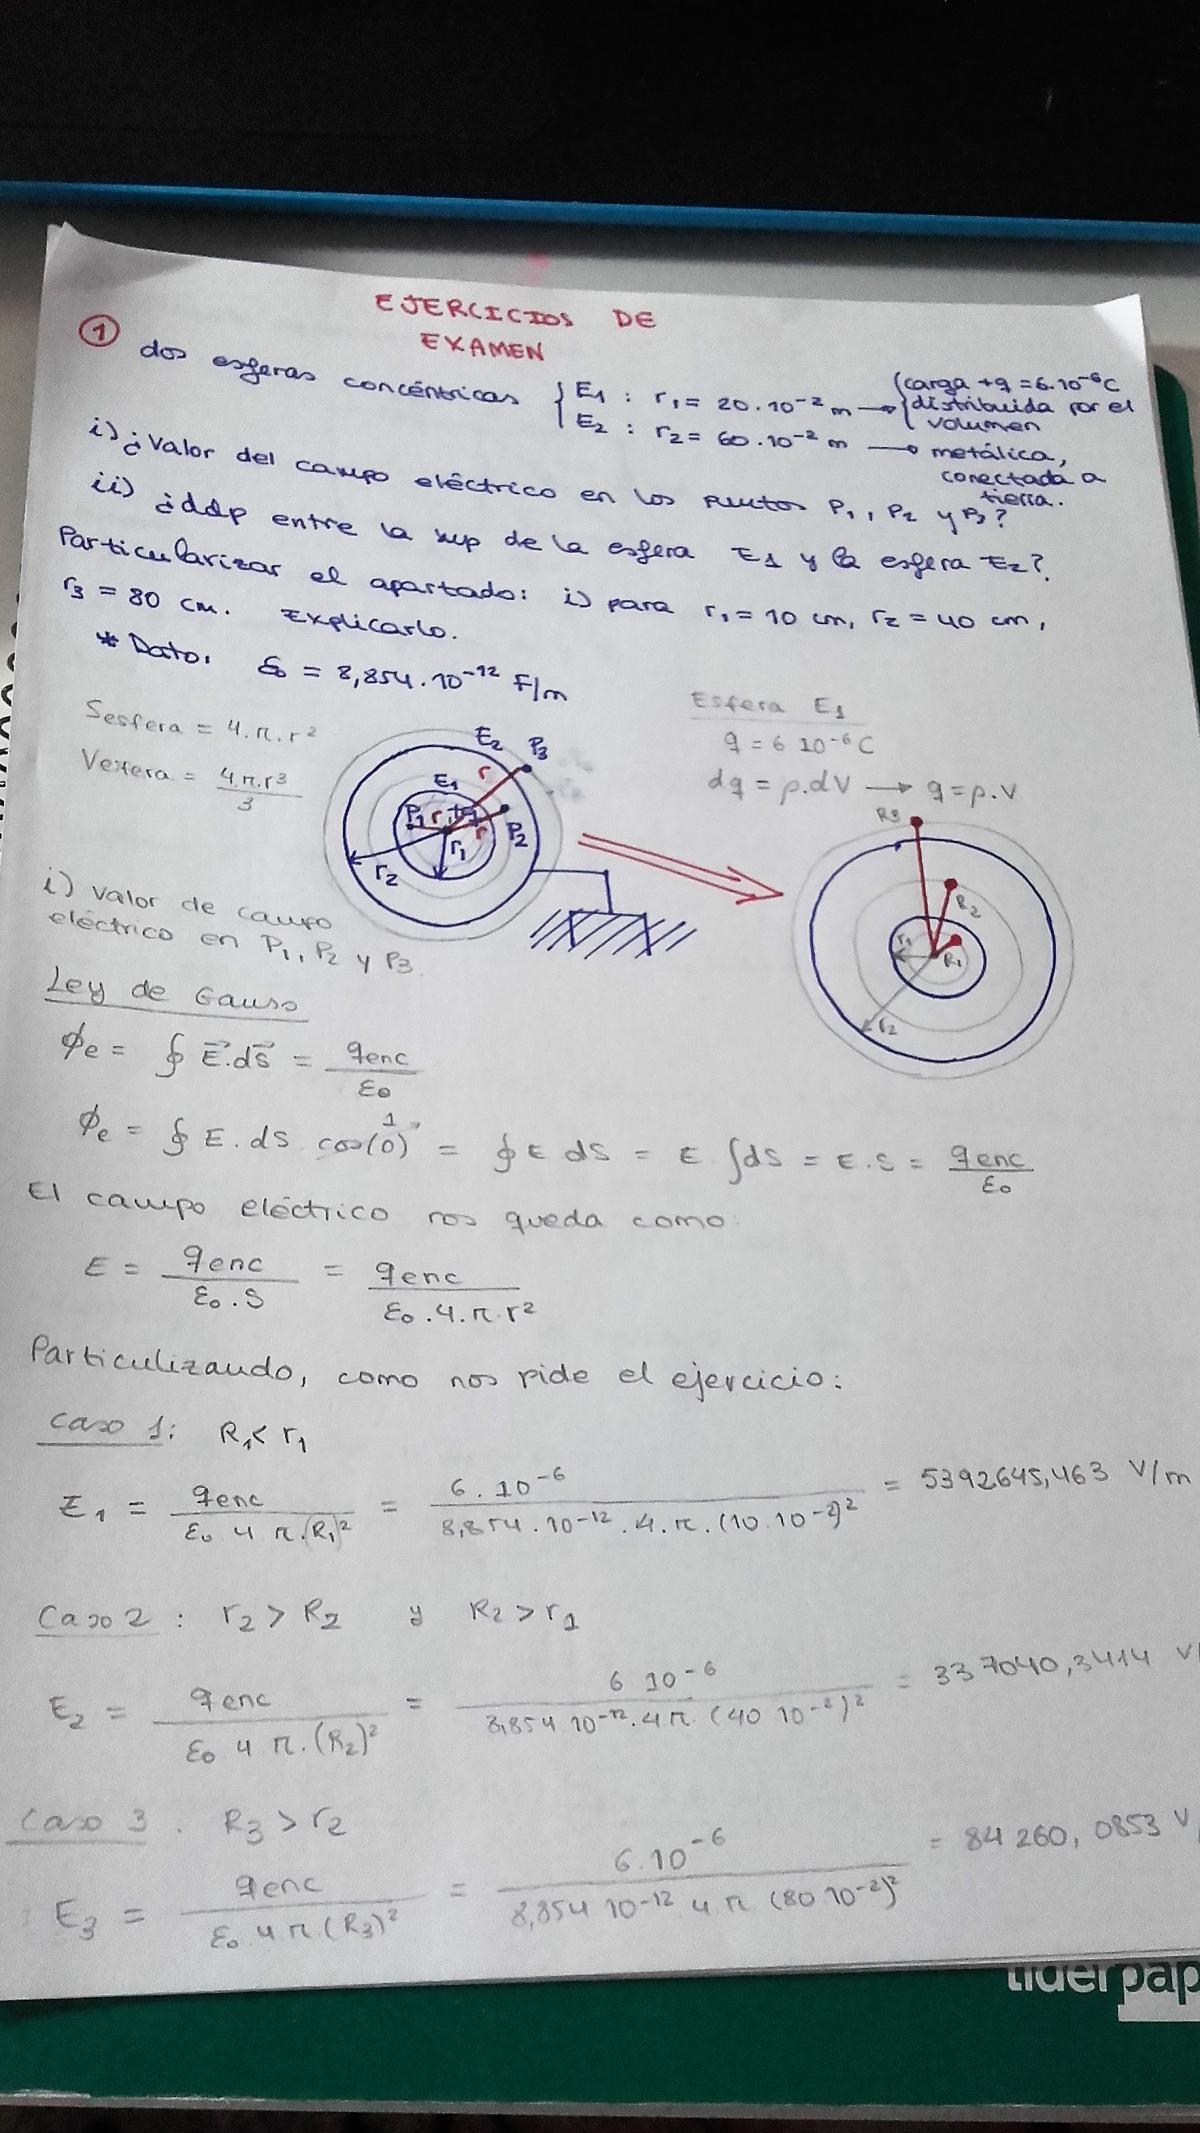 EJERCICIOS DE
EXAMEN
① dos esferas concéntricas { E1 : r1 = 20.10^-2 m → { carga +q = 6.10^-6 C
distribuida por el
volumen
E2 : r2 = 60.10^-2 m → metálica,
conectada a
tierra.
i) ¿Valor del campo eléctrico en los puntos P1, P2 y P3?
ii) ¿ddp entre la sup de la esfera E1 y la esfera E2?
Particularizar el apartado: i) para r1 = 10 cm, r2 = 40 cm,
r3 = 80 cm. Explicarlo.
* Dato: ε0 = 8,854.10^-12 F/m
Sesfera = 4.π.r²
Vesfera = 4.π.r³/3
E2 P3
E1 r
P1 r +q r P2
r1
r2
Esfera E1
q = 6 10^-6 C
dq = ρ.dV → q = ρ.V
R3
R2
r1 R1
r2
i) valor de campo
eléctrico en P1, P2 y P3.
Ley de Gauss
Φe = ∮ E⃗.dS⃗ = qenc/ε0
Φe = ∮ E.dS.cos(0) 1 = ∮ E dS = E.∫dS = E.S = qenc/ε0
El campo eléctrico nos queda como:
E = qenc/(ε0.S) = qenc/(ε0.4.π.r²)
Particulizando, como nos pide el ejercicio:
Caso 1: R1 < r1
E1 = qenc/(ε0 4 π.(R1)²) = 6.10^-6/(8,854.10^-12.4.π.(10.10^-2)²) = 5392645,463 V/m
Caso 2 : r2 > R2 y R2 > r1
E2 = qenc/(ε0 4 π.(R2)²) = 6 10^-6/(8,854 10^-12.4 π.(40 10^-2)²) = 337040,3414 V/
Caso 3 . R3 > r2
E3 = qenc/(ε0 4 π (R3)²) = 6.10^-6/(8,854 10^-12 4 π (80 10^-2)²) = 84260,0853 V/
liderpap